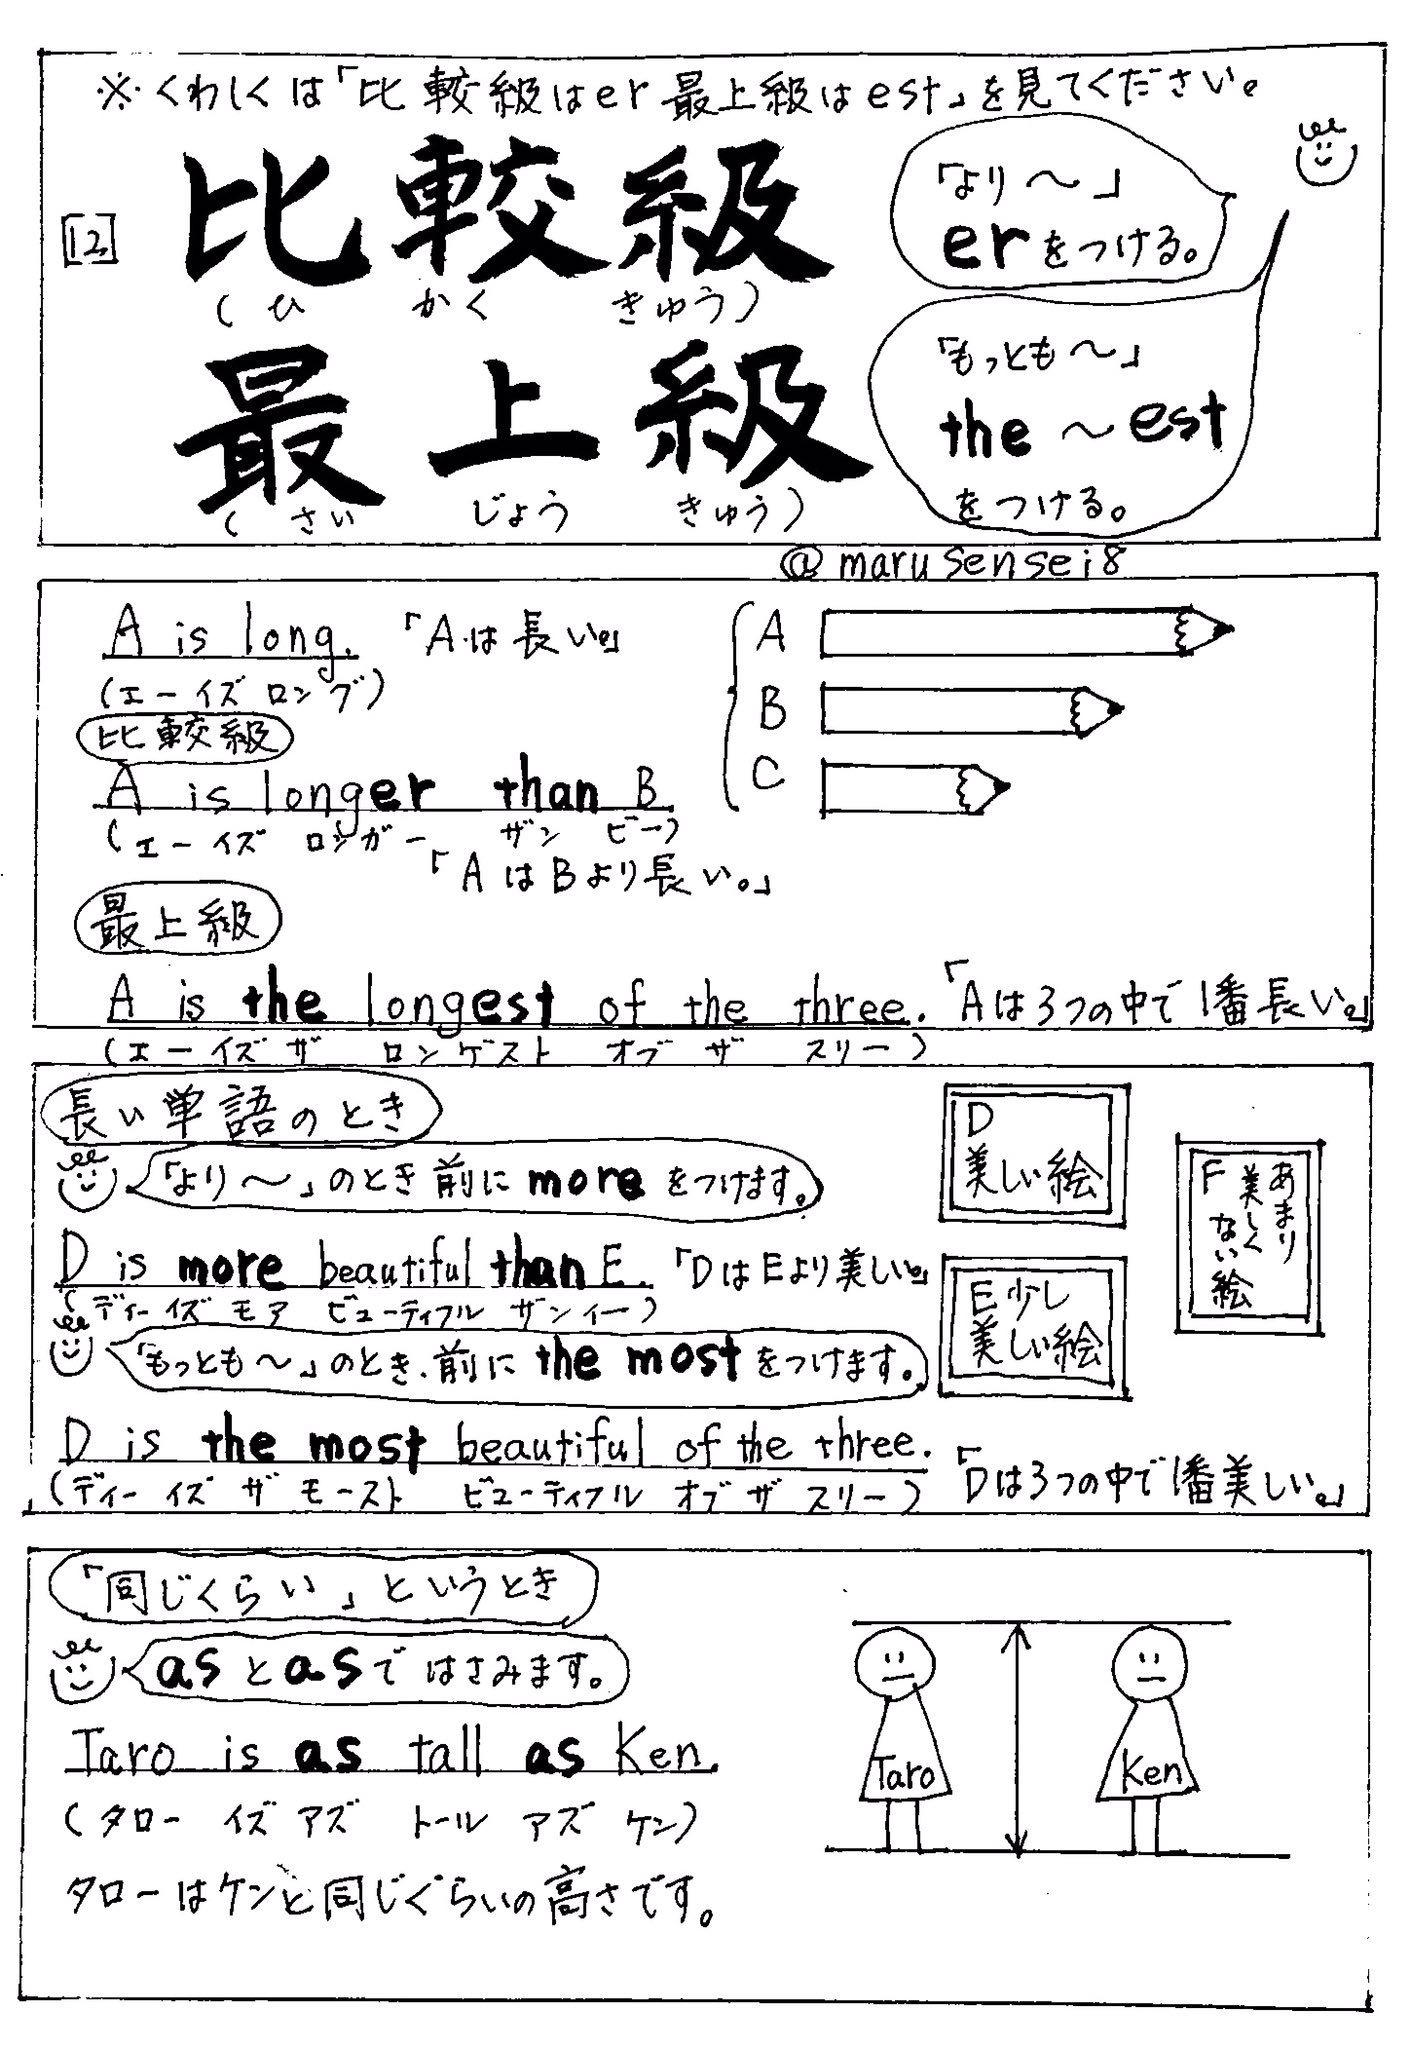 ※くわしくは「比較級はer 最上級はest」を見てください。
[12]
比較級
(ひかくきゅう)
「より〜」
erをつける。
最上級
(さいじょうきゅう)
「もっとも〜」
the 〜 est
をつける。
@marusensei8
A is long. 「Aは長い。」
(エー イズ ロング)
比較級
A is longer than B.
(エー イズ ロンガー ザン ビー)
「AはBより長い。」
A
B
C
最上級
A is the longest of the three. 「Aは3つの中で1番長い。」
(エー イズ ザ ロンゲスト オブ ザ スリー)
長い単語のとき
「より〜」のとき前にmoreをつけます。
D is more beautiful than E. 「DはEより美しい。」
(ディー イズ モア ビューティフル ザン イー)
「もっとも〜」のとき、前にthe mostをつけます。
D is the most beautiful of the three. 「Dは3つの中で1番美しい。」
(ディー イズ ザ モースト ビューティフル オブ ザ スリー)
D
美しい絵
E 少し
美しい絵
あまり
美しく
ない絵
F
「同じくらい」というとき
asとasではさみます。
Taro is as tall as Ken.
(タロー イズ アズ トール アズ ケン)
タローはケンと同じぐらいの高さです。
Taro
Ken